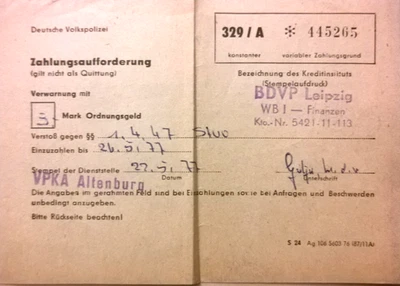 Deutsche Volkspolizei
Zahlungsaufforderung
(gilt nicht als Quittung)
Verwarnung mit
5,- Mark Ordnungsgeld
Verstoß gegen §§ 1, 4, 47 StVO
Einzuzahlen bis 26.5.77
Stempel der Dienststelle 22.5.77
VPKA Altenburg
Datum
Unterschrift
Die Angaben im gerahmten Feld sind bei Einzahlungen sowie bei Anfragen und Beschwerden
unbedingt anzugeben.
Bitte Rückseite beachten!
329/A * 445265
konstanter variabler Zahlungsgrund
Bezeichnung des Kreditinstituts
(Stempelaufdruck)
BDVP Leipzig
WB I — Finanzen
Kto.-Nr. 5421-11-113
S 24 Ag 106